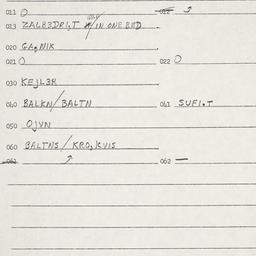 011 O 012
013 ZALB3DRI,T W/IN ONE BED
020 GA,NIK
021 O 022 O
030 KEJL3R
040 BALKN/BALTN 041 SUFI.T
050 OJVN
060 BALTNS/KRO,KVIS
062 062 —